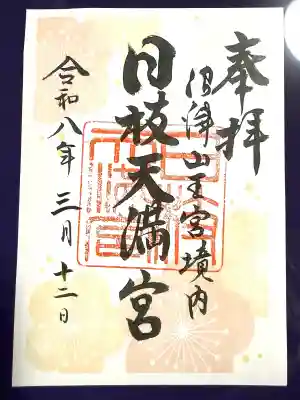 奉拝
沼津山王宮境内
日枝天満宮
令和八年三月十二日